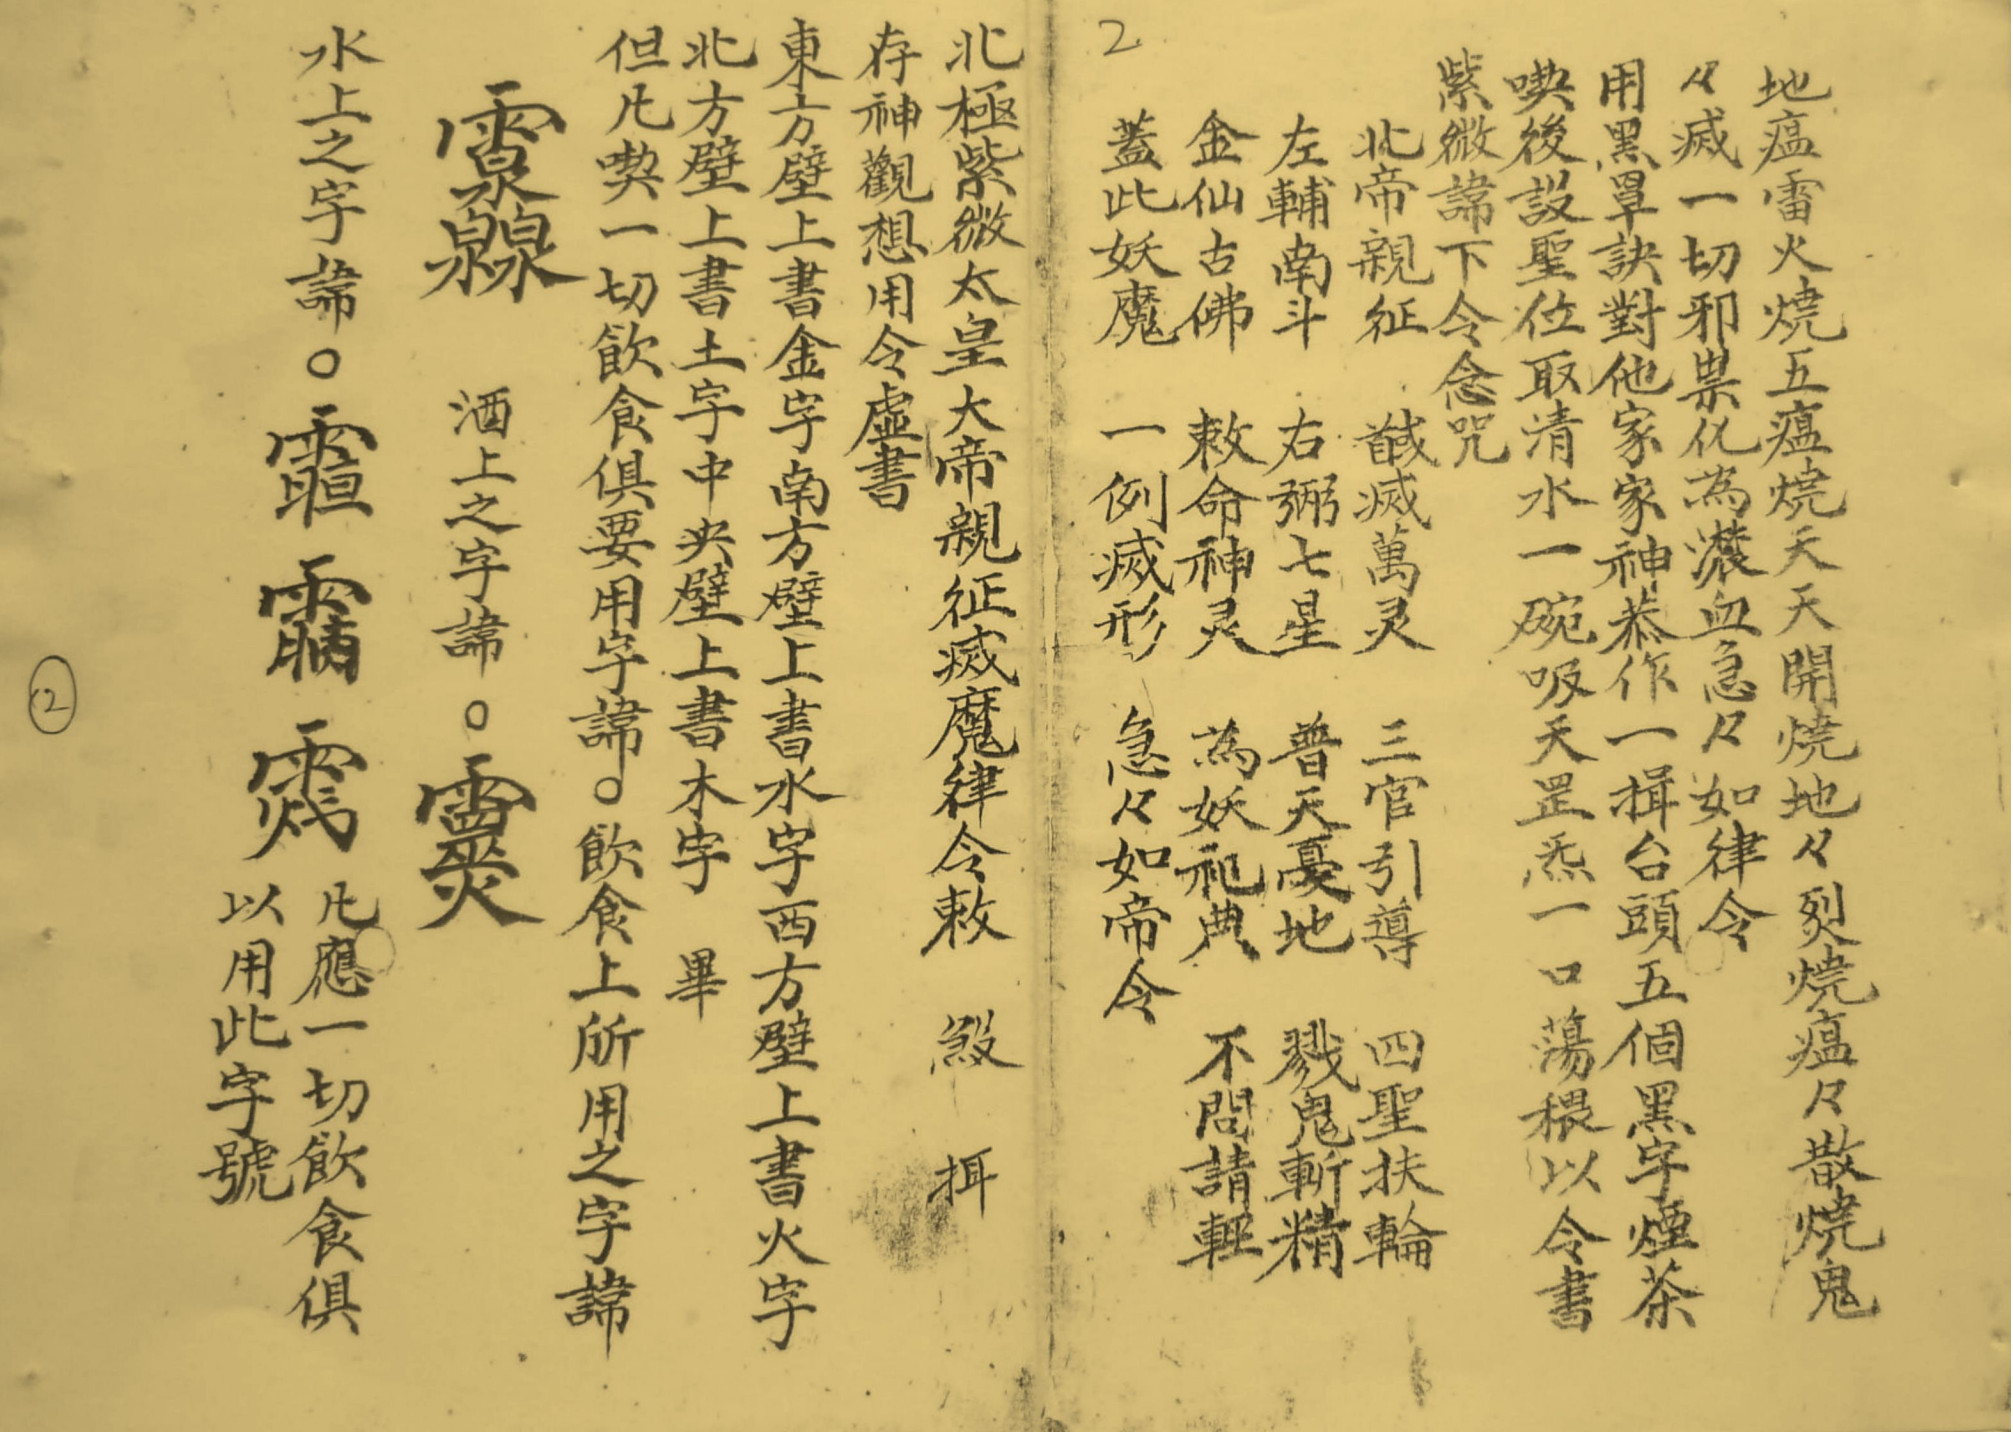 2
地瘟雷火燒五瘟燒天天開燒地々烈燒瘟々散燒鬼
々滅一切邪祟化為濃血急々如律令
用黑罩訣對他家家神恭作一揖台頭五個黑字煙茶
喫後設聖位取清水一碗吸天罡炁一口蕩穢以令書
紫微諱下令念咒
北帝親征 馘滅萬灵 三官引導 四聖扶輪
左輔南斗 右弼七星 普天憂地 戮鬼斬精
金仙古佛 敕命神灵 為妖祀典 不問請輕
蓋此妖魔 一例滅形 急々如帝令
北極紫微太皇大帝親征滅魔律令敕 煞 挕
存神觀想用令虛書
東方壁上書金字南方壁上書水字西方壁上書火字
北方壁上書土字中央壁上書木字 畢
但凡喫一切飲食俱要用字諱○飲食上所用之字諱
酒上之字諱○
水上之字諱○
凡應一切飲食俱
以用此字號
2